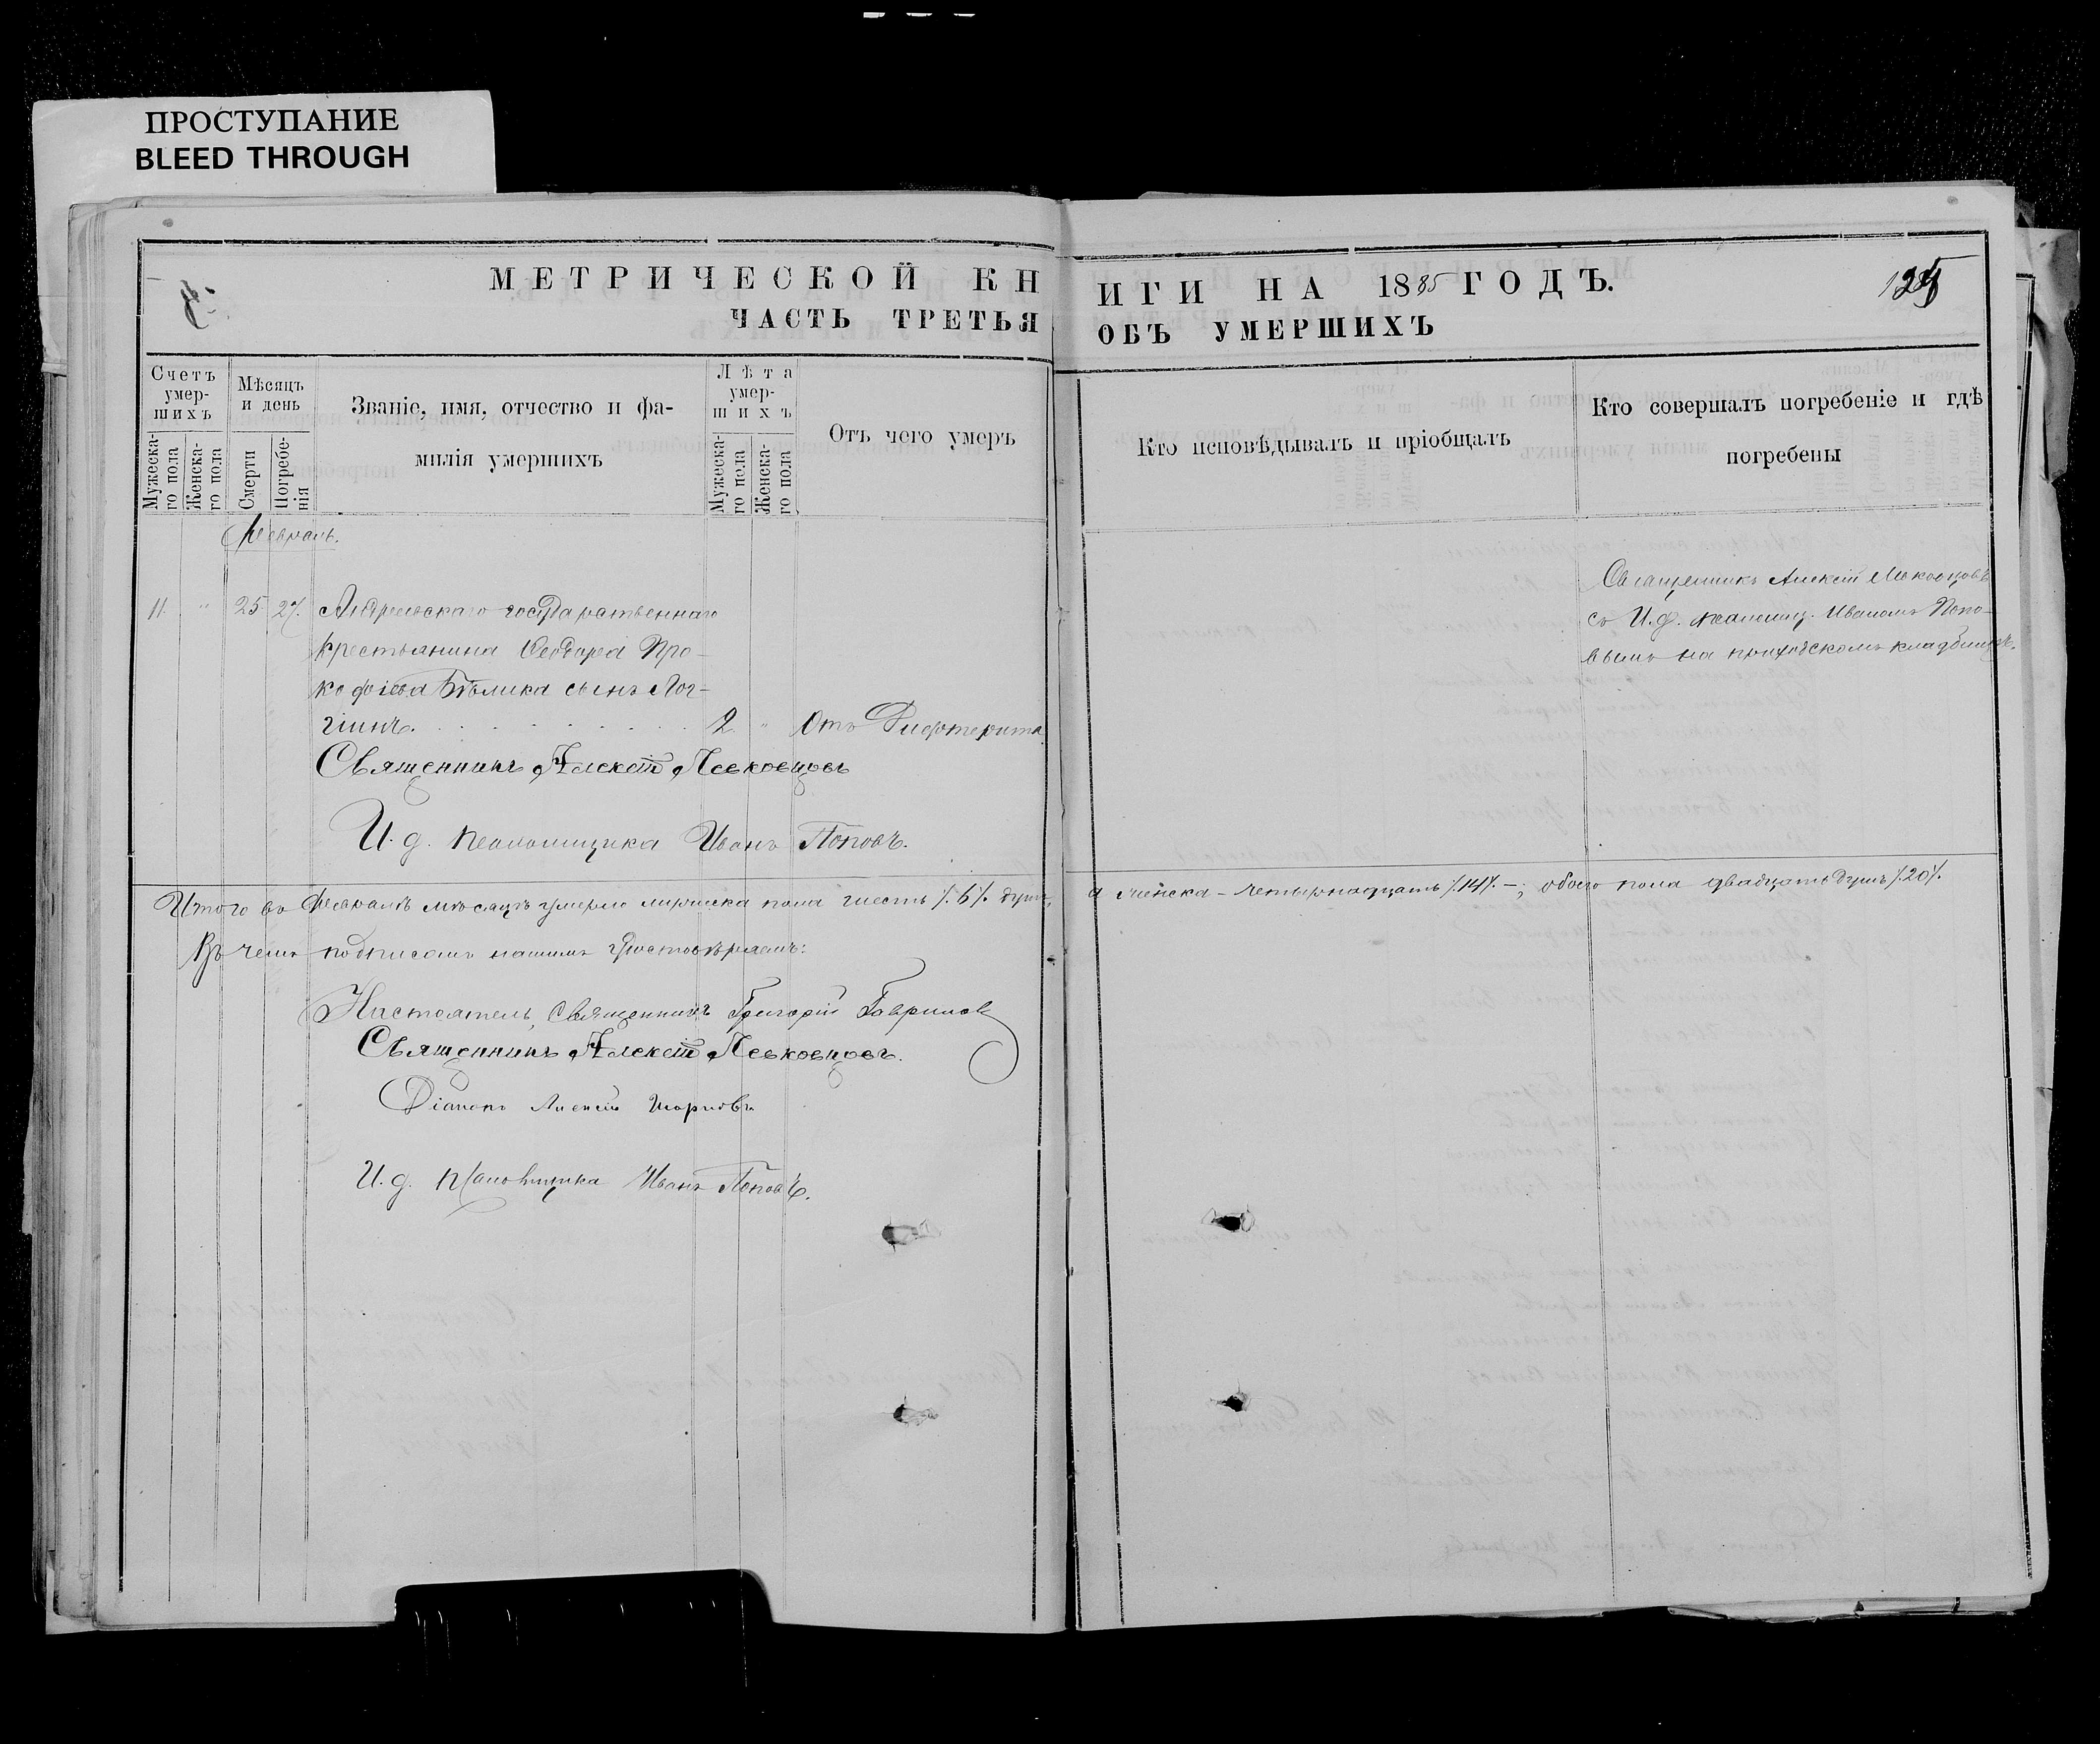 ПРОСТУПАНИЕ
BLEED THROUGH
МЕТРИЧЕСКОЙ КНИГИ НА 1885 ГОДЪ.
ЧАСТЬ ТРЕТЬЯ ОБЪ УМЕРШИХЪ
Счетъ умер-шихъ
Мужеска-го пола
Женска-го пола
Мѣсяцъ и день
Смерти
Погребе-нія
Званіе, имя, отчество и фа-
милія умершихъ
Лѣта умер-шихъ
Мужеска-го пола
Женска-го пола
Отъ чего умеръ
Кто исповѣдывалъ и пріобщалъ
Кто совершалъ погребеніе и гдѣ
погребены
Февраль.
11. " 25 27. государственнаго
крестьянина Ѳеодора Про-
кофіева Бѣлика сынъ Лог-
гинъ. 2 " Отъ Дифтерита
Священникъ Алексѣй Левковцовъ
И. д. псаломщика Иванъ Поповъ.
Священникъ Алексій Левковцовъ
съ И. д. псаломщ. Иваномъ Попо-
вымъ на приходскомъ кладбищѣ.
Итого во Февралѣ мѣсяцѣ умерло мужеска пола шесть ·/. 6 ·/. душъ, а женска – четырнадцать ·/. 14 ·/. –; обоего пола двадцать душъ ·/. 20 ·/.
Въ чемъ подписомъ нашимъ удостовѣряемъ:
Настоятель, Священникъ Григорій Гавриловъ
Священникъ Алексѣй Левковцовъ.
Діаконъ Алексій
И. д. псаломщика Иванъ Поповъ.